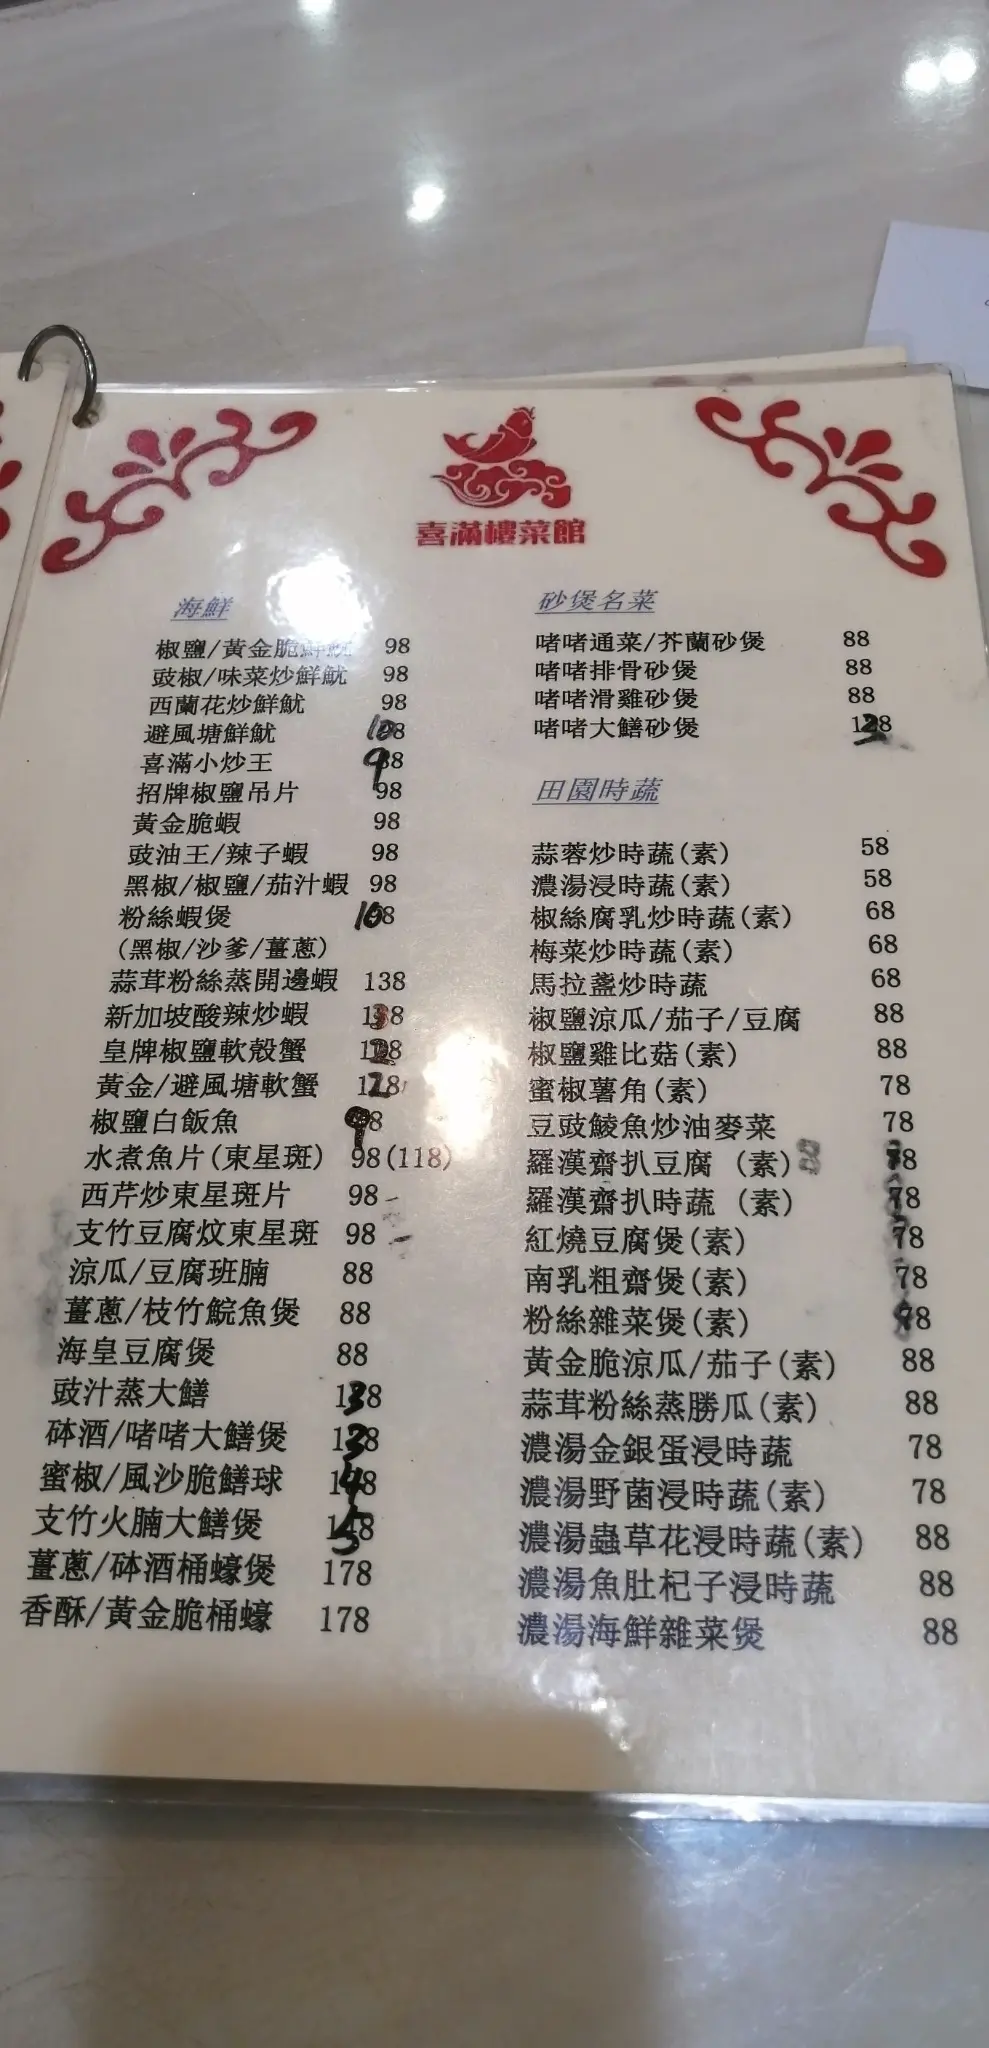 喜滿樓菜館
海鮮
椒鹽/黃金脆鮮魷 98
豉椒/味菜炒鮮魷 98
西蘭花炒鮮魷 98
避風塘鮮魷 108
喜滿小炒王 98
招牌椒鹽吊片 98
黃金脆蝦 98
豉油王/辣子蝦 98
黑椒/椒鹽/茄汁蝦 98
粉絲蝦煲 108
(黑椒/沙爹/薑蔥)
蒜茸粉絲蒸開邊蝦 138
新加坡酸辣炒蝦 138
皇牌椒鹽軟殼蟹 128
黃金/避風塘軟蟹 128
椒鹽白飯魚 98
水煮魚片(東星斑) 98(118)
西芹炒東星斑片 98
支竹豆腐炆東星斑 98
涼瓜/豆腐班腩 88
薑蔥/枝竹鯇魚煲 88
海皇豆腐煲 88
豉汁蒸大鱔 138
砵酒/啫啫大鱔煲 138
蜜椒/風沙脆鱔球 148
支竹火腩大鱔煲 158
薑蔥/砵酒桶蠔煲 178
香酥/黃金脆桶蠔 178
砂煲名菜
啫啫通菜/芥蘭砂煲 88
啫啫排骨砂煲 88
啫啫滑雞砂煲 88
啫啫大鱔砂煲 138
田園時蔬
蒜蓉炒時蔬(素) 58
濃湯浸時蔬(素) 58
椒絲腐乳炒時蔬(素) 68
梅菜炒時蔬(素) 68
馬拉盞炒時蔬 68
椒鹽涼瓜/茄子/豆腐 88
椒鹽雞比菇(素) 88
蜜椒薯角(素) 78
豆豉鯪魚炒油麥菜 78
羅漢齋扒豆腐 (素) 78
羅漢齋扒時蔬 (素) 78
紅燒豆腐煲(素) 78
南乳粗齋煲(素) 78
粉絲雜菜煲(素) 78
黃金脆涼瓜/茄子(素) 88
蒜茸粉絲蒸勝瓜(素) 88
濃湯金銀蛋浸時蔬 78
濃湯野菌浸時蔬(素) 78
濃湯蟲草花浸時蔬(素) 88
濃湯魚肚杞子浸時蔬 88
濃湯海鮮雜菜煲 88